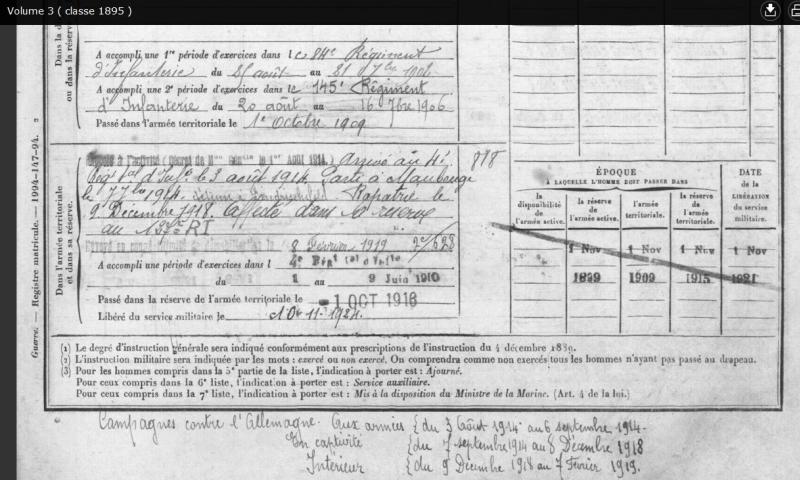 Volume 3 ( classe 1895 )
Dans la d
ou dans la réserve
A accompli une 1re période d'exercices dans le 84e Régiment
d'Infanterie du 25 août au 21 7bre 1902
A accompli une 2e période d'exercices dans le 145e Régiment
d'Infanterie du 20 août au 16 7bre 1906
Passé dans l'armée territoriale le 1e Octobre 1909
Guerre. — Registre matricule. — 1994-147-94.
Dans l'armée territoriale
et dans sa réserve.
à l'activité (Décret de le 1er Août 1914) Arrivé au 4e 818
Regt tal d'Infie le 3 août 1914. à Maubeuge
le 7 7bre 1914. Rapatrié le
9 Décembre 1918. dans la réserve
au RI
le 8 Février 1919
A accompli une période d'exercices dans l 4e Régt tal d'Infie
du 1 au 9 Juin 1910
Passé dans la réserve de l'armée territoriale le 1 OCT 1916
Libéré du service militaire le
ÉPOQUE
A LAQUELLE L'HOMME DOIT PASSER DANS
DATE
DE LA
LIBÉRATION
du service
militaire.
la
disponibilité
de
l'armée active.
la réserve
de
l'armée active.
l'armée
territoriale.
la réserve
de
l'armée
territoriale.
1 Nov 1 Nov 1 Nov 1 Nov
1899 1909 1915 1921
(1) Le degré d'instruction générale sera indiqué conformément aux prescriptions de l'instruction du 4 décembre 1889.
(2) L'instruction militaire sera indiquée par les mots : exercé ou non exercé. On comprendra comme non exercés tous les hommes n'ayant pas passé au drapeau.
(3) Pour les hommes compris dans la 5e partie de la liste, l'indication à porter est : Ajourné.
Pour ceux compris dans la 6e liste, l'indication à porter est : Service auxiliaire.
Pour ceux compris dans la 7e liste, l'indication à porter est : Mis à la disposition du Ministre de la Marine. (Art. 4 de la loi.)
Campagnes contre l'Allemagne. Aux armées { du 3 Août 1914 au 6 septembre 1914.
En captivité { du 7 septembre 1914 au 8 Décembre 1918
Intérieur { du 9 Décembre 1918 au 7 Février 1919.